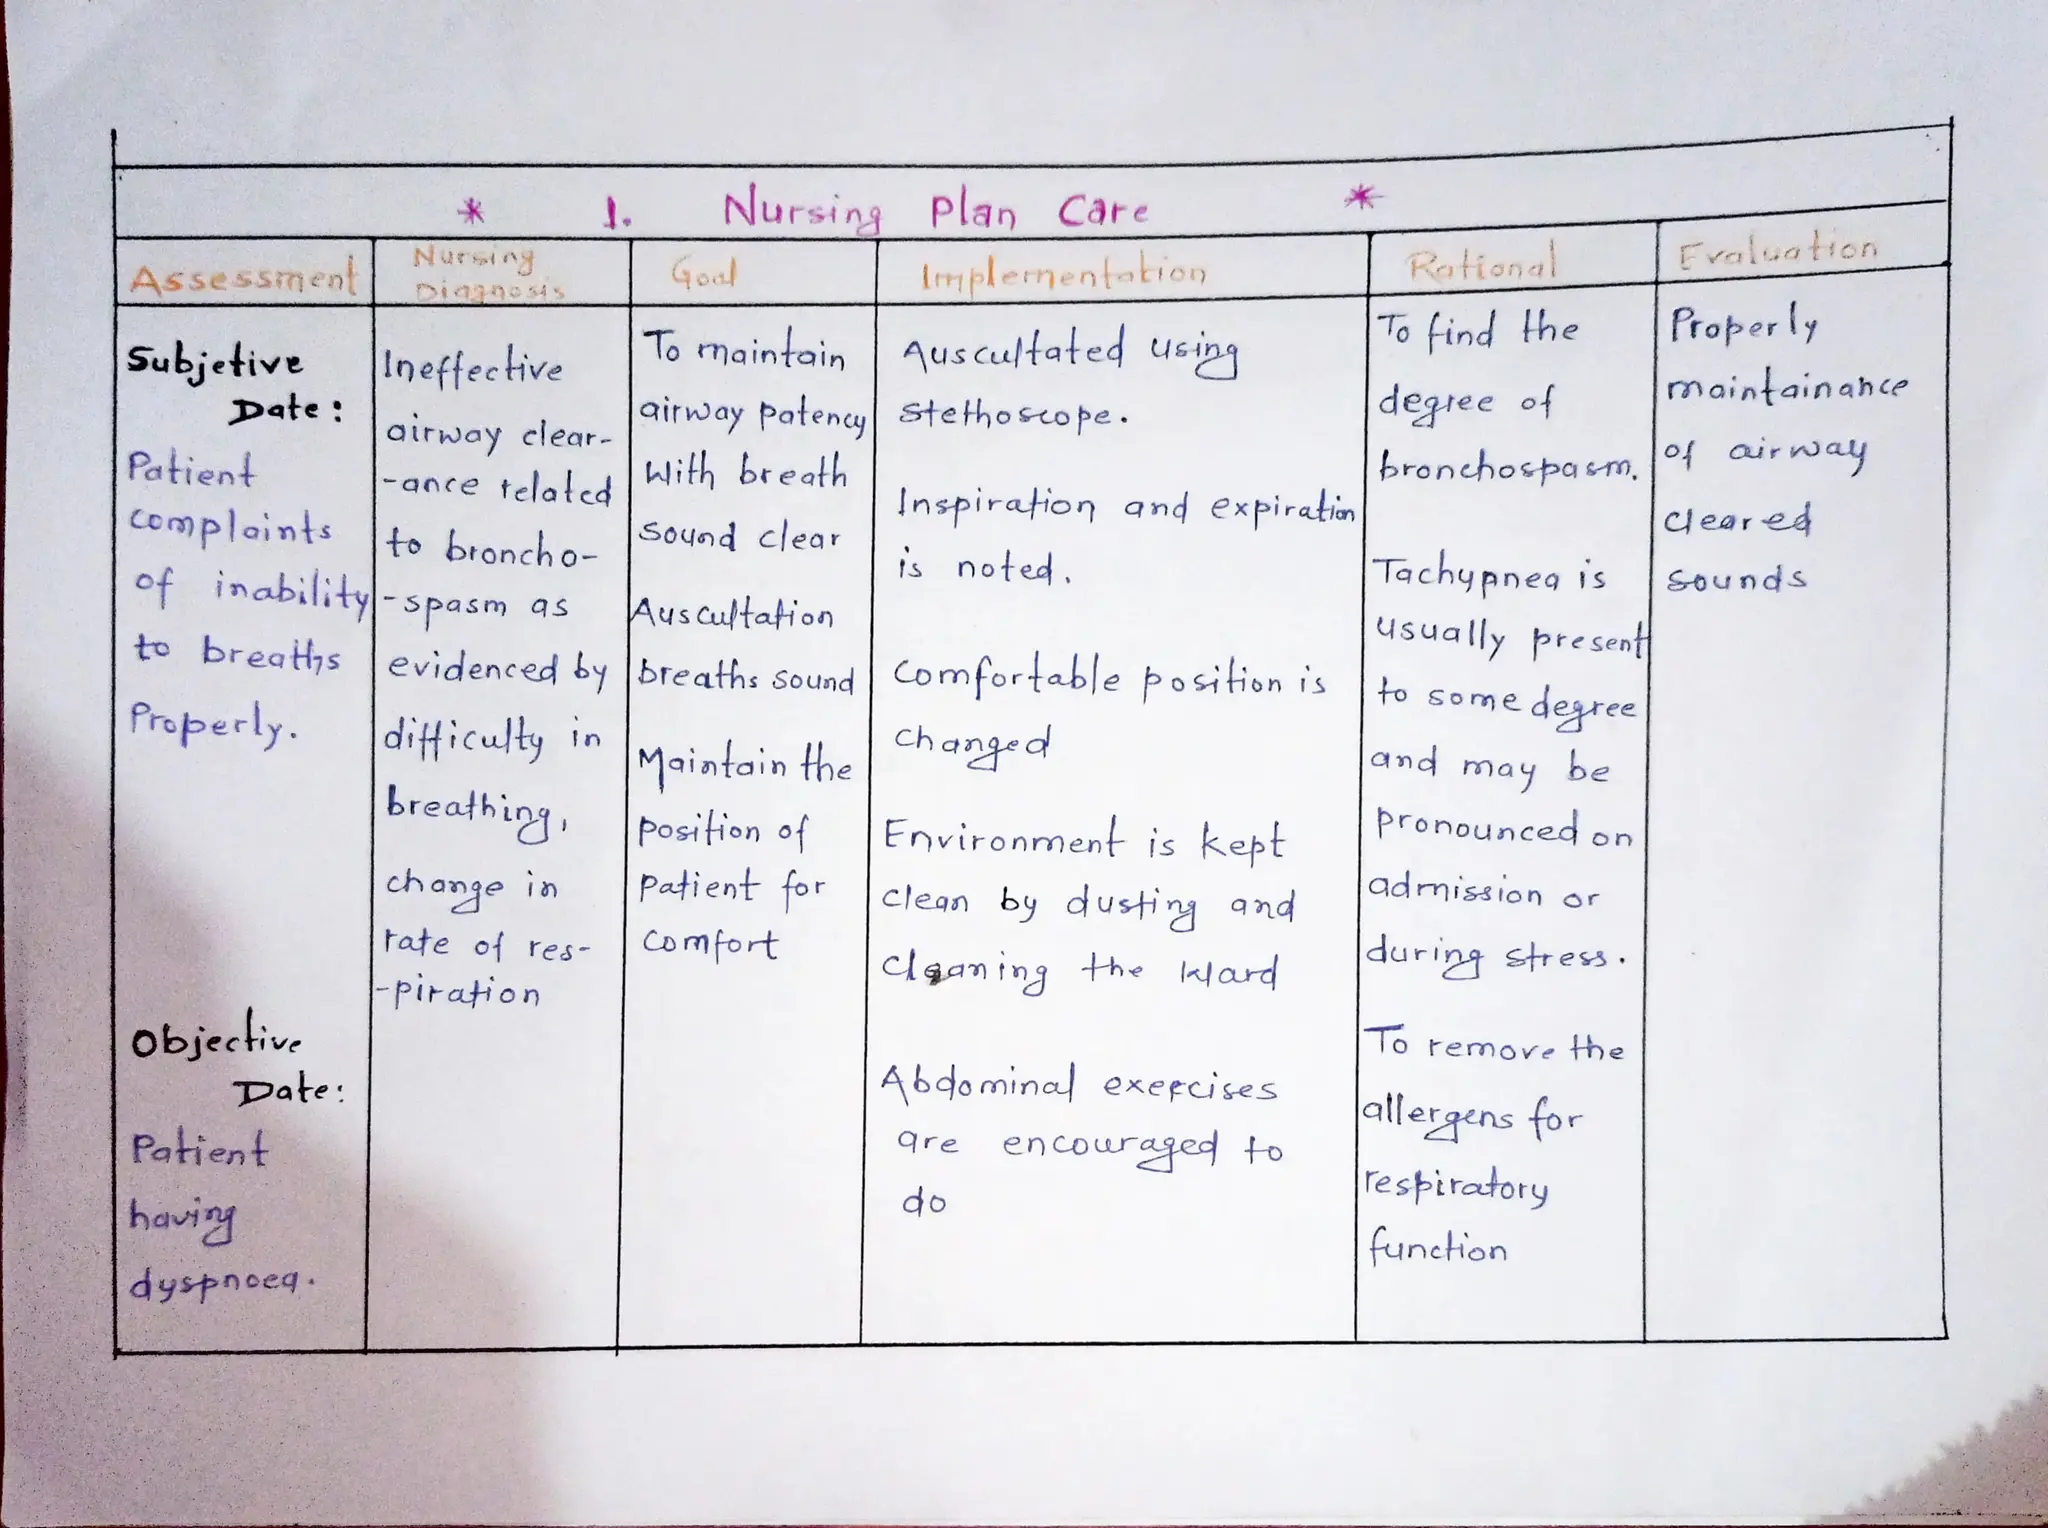 * 1. Nursing Plan Care *
Assessment
Nursing
Diagnosis
Goal
Implementation
Rational
Evaluation
Subjetive
Date:
Patient
complaints
of inability
to breaths
Properly.
Objective
Date:
Patient
having
dyspnoea.
Ineffective
airway clear-
-ance related
to broncho-
-spasm as
evidenced by
difficulty in
breathing,
change in
rate of res-
-piration
To maintain
airway patency
With breath
sound clear
Auscultation
breaths sound
Maintain the
position of
patient for
comfort
Auscultated using
stethoscope.
Inspiration and expiration
is noted.
Comfortable position is
changed
Environment is kept
clean by dusting and
cleaning the Ward
Abdominal exercises
are encouraged to
do
To find the
degree of
bronchospasm.
Tachypnea is
usually present
to some degree
and may be
pronounced on
admission or
during stress.
To remove the
allergens for
respiratory
function
Properly
maintainance
of airway
cleared
sounds